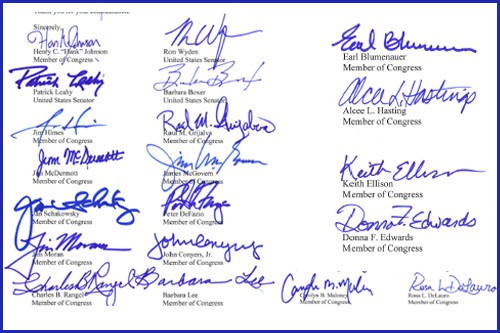 Sincerely,
Henry C. "Hank" Johnson
Member of Congress
Ron Wyden
United States Senator
Earl Blumenauer
Earl Blumenauer
Member of Congress
Patrick Leahy
Patrick Leahy
United States Senator
Barbara Boxer
United States Senator
Alcee L. Hastings
Alcee L. Hasting
Member of Congress
Jim Himes
Member of Congress
Raul M. Grijalva
Raul M. Grijalva
Member of Congress
Jim McDermott
Jim McDermott
Member of Congress
James McGovern
Member of Congress
Keith Ellison
Keith Ellison
Member of Congress
Jan Schakowsky
Jan Schakowsky
Member of Congress
Peter DeFazio
Member of Congress
Donna F. Edwards
Donna F. Edwards
Member of Congress
Jim Moran
Jim Moran
Member of Congress
John Conyers
John Conyers, Jr.
Member of Congress
Charles B. Rangel
Charles B. Rangel
Member of Congress
Barbara Lee
Barbara Lee
Member of Congress
Carolyn B. Maloney
Member of Congress
Rosa L. DeLauro
Rosa L. DeLauro
Member of Congress